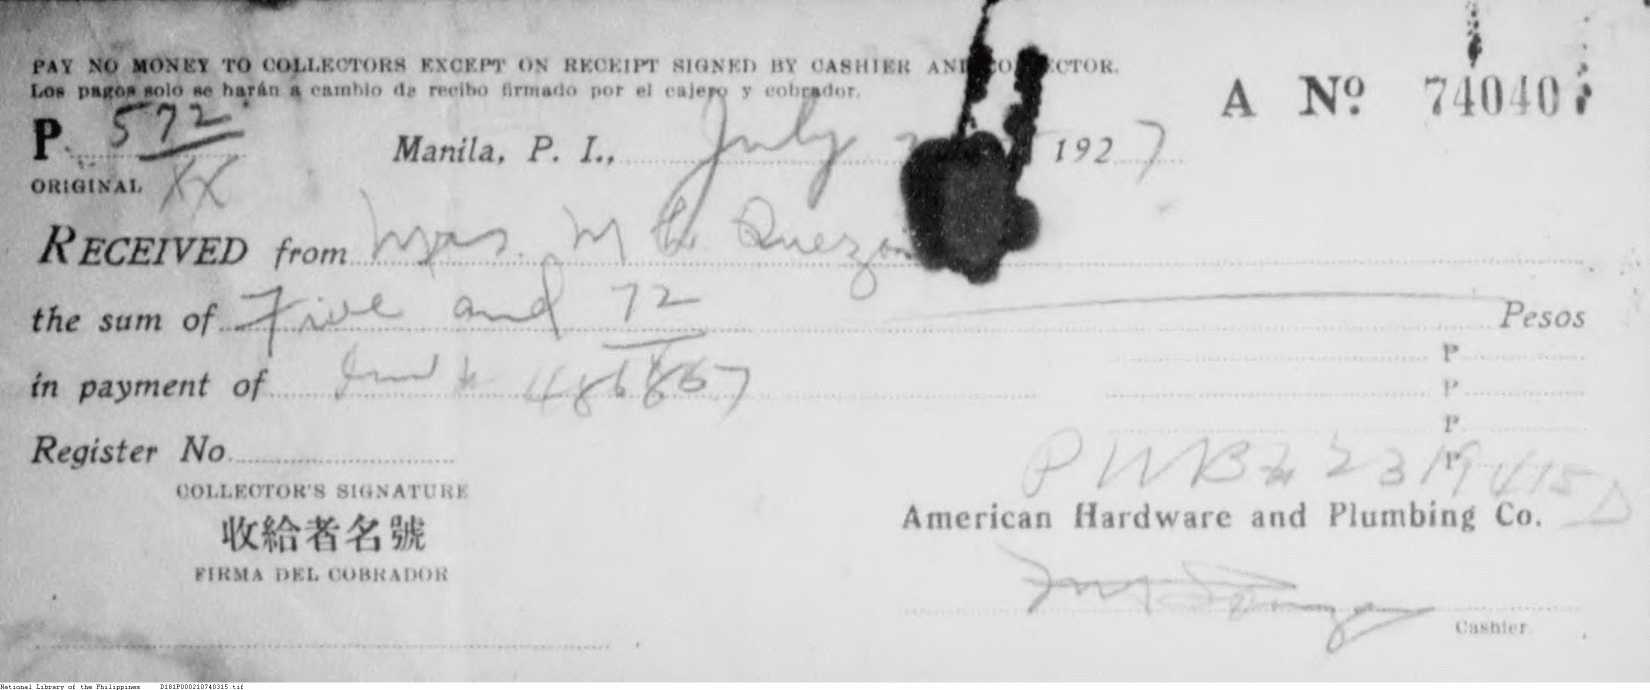 PAY NO MONEY TO COLLECTORS EXCEPT ON RECEIPT SIGNED BY CASHIER AND COLLECTOR.
Los pagos solo se harán a cambio de recibo firmado por el cajero y cobrador.
A Nº 74040
P. 572
XX
Manila, P. I., July 1927
ORIGINAL
RECEIVED from Mrs. M L Quezon
the sum of Five and 72 Pesos
P
in payment of 486867
P
P
Register No.
P
COLLECTOR'S SIGNATURE
收給者名號
FIRMA DEL COBRADOR
American Hardware and Plumbing Co.
Cashier
National Library of the Philippines D181P000210740315.tif